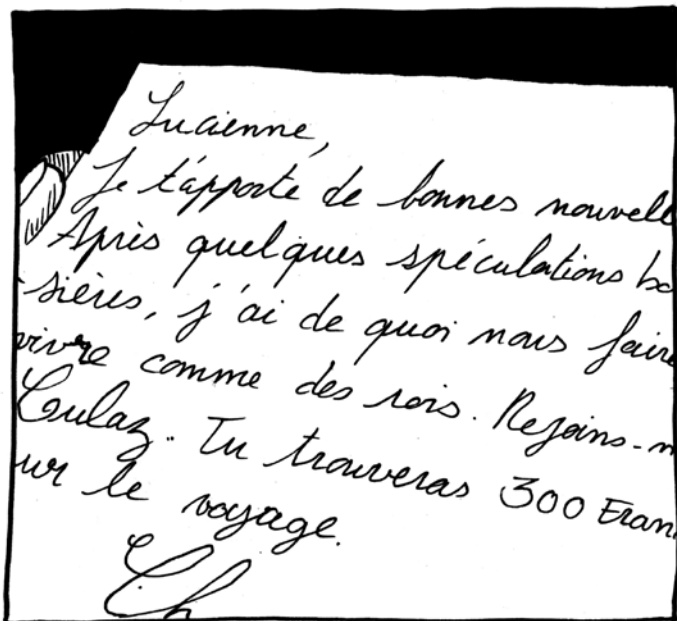 Lucienne,
Je t'apporte de bonnes nouvell
Après quelques spéculations bo
sières, j'ai de quoi nous faire
vivre comme des rois. Rejoins-m
Culaz. Tu trouveras 300 Fran
ur le voyage.
Ch